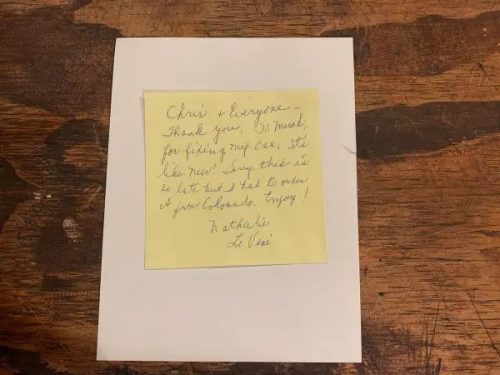 Chris + Everyone -
Thank you, so much,
for fixing my car, It's
like new! Sorry this is
so late but I had to order
it from Colorado. Enjoy!
Nathalie
Le Vine